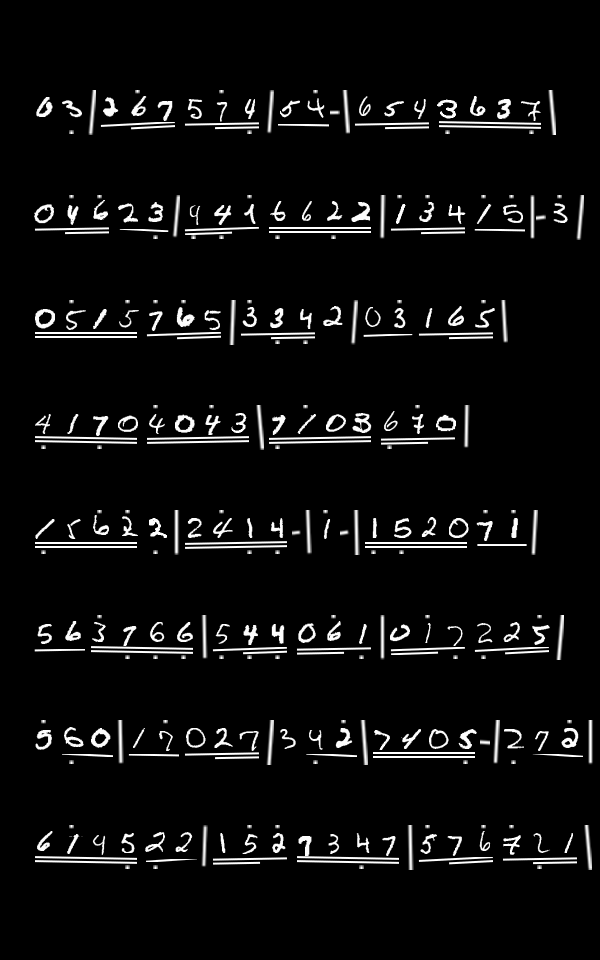 03|267574|54-|6543637
04623|9416622|13415|-3
0515765|3342|03165
41704043|7103670
15622|2414-|1-|152071
563766|544061|017225
560|17027|342|7405-|272
619522|1527347|576721